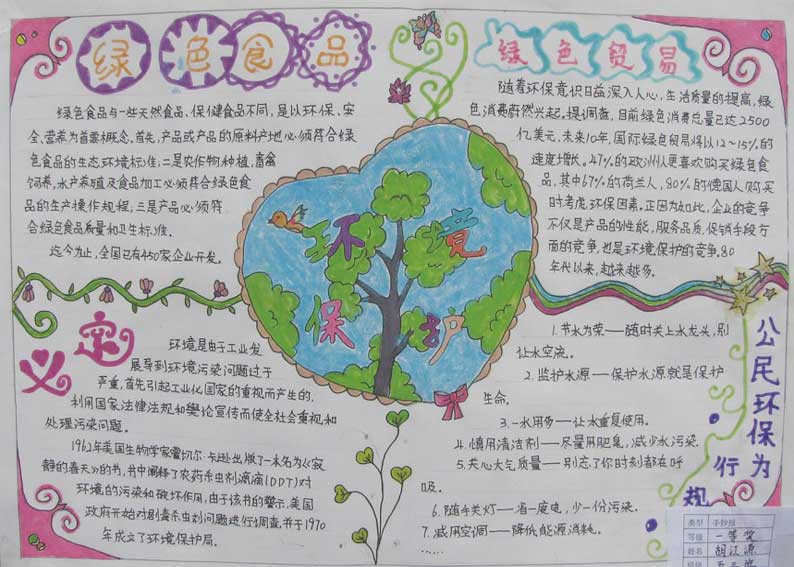 绿色食品
绿色食品与一些天然食品、保健食品不同,是以环保、安
全、营养为首要概念。首先,产品或产品的原料产地必须符合绿
色食品的生态环境标准,二是农作物种植,畜禽
饲养,水产养殖及食品加工必须符合绿色食
品的生产操作规程,三是产品必须符
合绿色食品质量和卫生标准。
迄今为止,全国已有450家企业开发。
绿色贸易
随着环保意识日益深入人心,生活质量的提高,绿
色消费蔚然兴起。据调查,目前绿色消费总量已达2500
亿美元,未来10年,国际绿色贸易将以12~15%的
速度增长。47%的欧洲人更喜欢购买绿色食
品,其中67%的荷兰人,80%的德国人购买
时考虑环保因素。正因为如此,企业的竞争
不仅是产品的性能,服务品质,促销手段方
面的竞争,也是环境保护的竞争。80
年代以来,越来越多。
环境
保护
定义
环境是由于工业发
展导到环境污染问题过于
严重,首先引起工业化国家的重视而产生的,
利用国家法律法规和舆论宣传而使全社会重视和
处理污染问题。
1962年美国生物学家蕾切尔·卡逊出版了一本名为《寂
静的春天》的书,书中阐释了农药杀虫剂滴滴(DDT)对
环境的污染和破坏作用,由于该书的警示,美国
政府开始对剧毒杀虫剂问题进行调查,并于1970
年成立了环境保护局。
公民环保为
行规
1.节水为荣——随时关上水龙头,别
让水空流。
2.监护水源——保护水源就是保护
生命。
3.一水多用——让水重复使用。
4.慎用清洁剂——尽量用肥皂,减少水污染。
5.关心大气质量——别忘了你时刻都在呼
吸。
6.随手关灯——省一度电,少一份污染。
7.减用空调——降低能源消耗。
……
类型 手抄报
等级 一等奖
姓名 胡江源